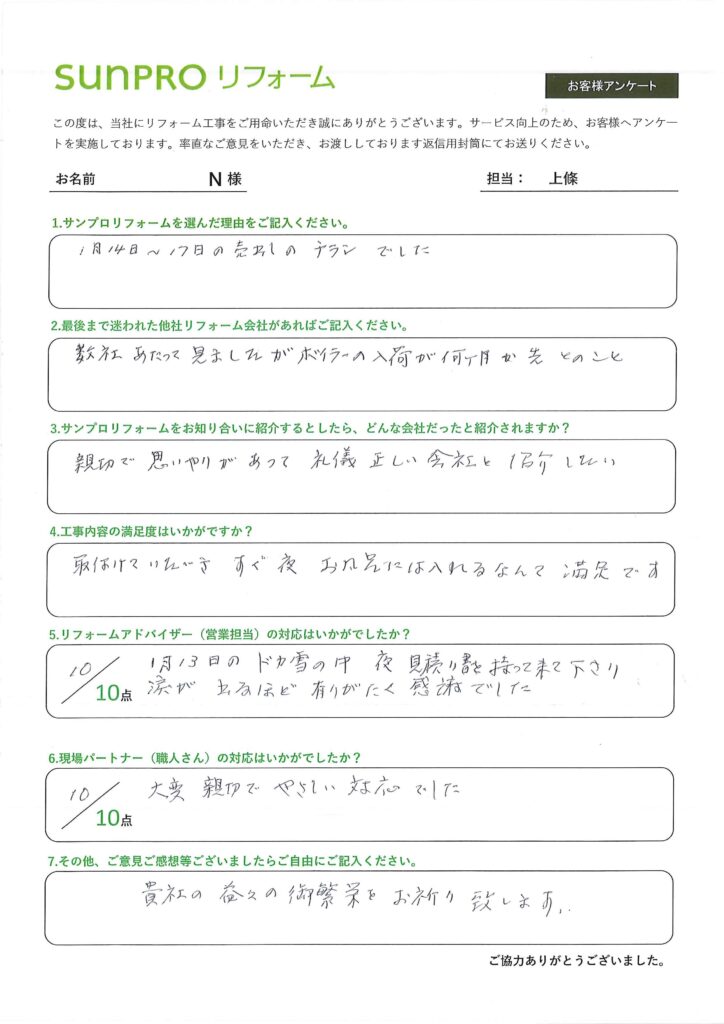 SUNPRO リフォーム
お客様アンケート
この度は、当社にリフォーム工事をご用命いただき誠にありがとうございます。サービス向上のため、お客様へアンケー
トを実施しております。率直なご意見をいただき、お渡ししております返信用封筒にてお送りください。
お名前 N 様 担当： 上條
1.サンプロリフォームを選んだ理由をご記入ください。
1月14日～17日の売出しの チラシ でした
2.最後まで迷われた他社リフォーム会社があればご記入ください。
数社 あたって 見ましたが ボイラーの入荷が何ヶ月か先 とのこと
3.サンプロリフォームをお知り合いに紹介するとしたら、どんな会社だったと紹介されますか？
親切で 思いやりが あって 礼儀 正しい 会社と 紹介 したい
4.工事内容の満足度はいかがですか？
取付けていただき すぐ 夜 お風呂には入れるなんて 満足です
5.リフォームアドバイザー（営業担当）の対応はいかがでしたか？
1月13日の ドカ雪の中 夜 見積り書を持って来て下さり
涙が 出るほど 有りがたく 感謝でした
10/10点
6.現場パートナー（職人さん）の対応はいかがでしたか？
大変 親切で やさしい 対応 でした
10/10点
7.その他、ご意見ご感想等ございましたらご自由にご記入ください。
貴社の 益々の御繁栄を お祈り 致します
ご協力ありがとうございました。